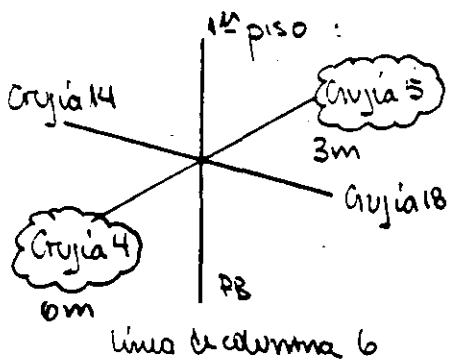 1er piso :
Crujía 14
Crujía 5
3m
Crujía 18
Crujía 4
6m
PB
línea de columna 6